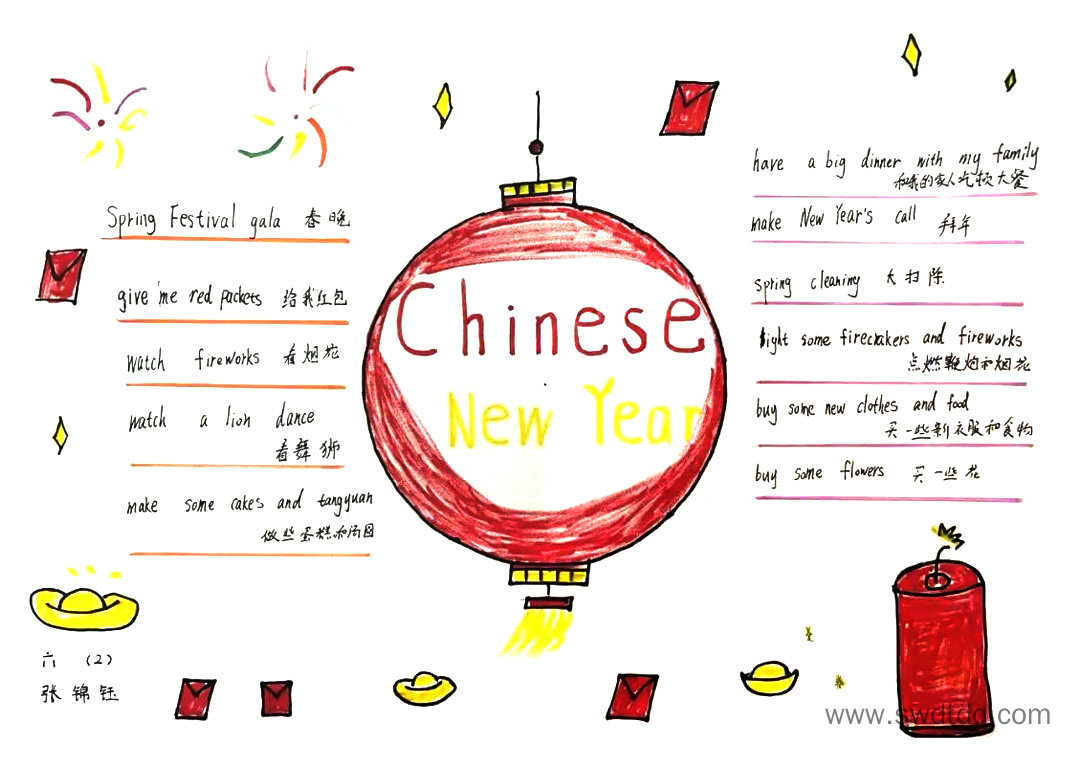 Chinese
New Year
Spring Festival gala 春晚
give me red packets 给我红包
watch fireworks 看烟花
watch a lion dance
看舞狮
make some cakes and tangyuan
做些蛋糕和汤圆
六 (2)
张锦钰
have a big dinner with my family
和我的家人吃顿大餐
make New Year's call 拜年
spring cleaning 大扫除
light some firecrakers and fireworks
点燃鞭炮和烟花
buy some new clothes and food
买一些新衣服和食物
buy some flowers 买一些花
www.swdtdg.com